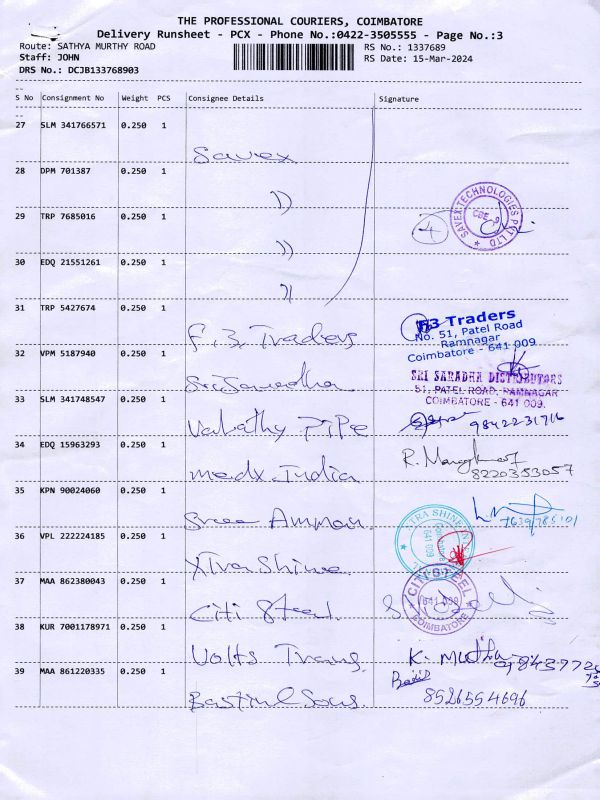 THE PROFESSIONAL COURIERS, COIMBATORE
Delivery Runsheet - PCX - Phone No.:0422-3505555 - Page No.:3
Route: SATHYA MURTHY ROAD RS No.: 1337689
Staff: JOHN RS Date: 15-Mar-2024
DRS No.: DCJB133768903
S No Consignment No Weight PCS Consignee Details Signature
27 SLM 341766571 0.250 1
Savex
28 DPM 701387 0.250 1
))
29 TRP 7685016 0.250 1
))
4
SAVEX TECHNOLOGIES PVT LTD
CBE
30 EDQ 21551261 0.250 1
))
31 TRP 5427674 0.250 1
F.3. Traders
F3 Traders
No. 51, Patel Road
Ramnagar
Coimbatore - 641 009
32 VPM 5187940 0.250 1
SRI SARADHA DISTRIBUTORS
51, PATEL ROAD, RAMNAGAR
COIMBATORE - 641 009.
33 SLM 341748547 0.250 1
Pipe
9842231716
34 EDQ 15963293 0.250 1
medx India
R.
8220353057
35 KPN 90024060 0.250 1
Sree Amman
36 VPL 222224185 0.250 1
Xtra Shine
641 009
37 MAA 862380043 0.250 1
Citi Steel
CITI STEEL
641 009
COIMBATORE
38 KUR 7001178971 0.250 1
Volts Trans
K. Muthu
39 MAA 861220335 0.250 1
Sons
8526554696